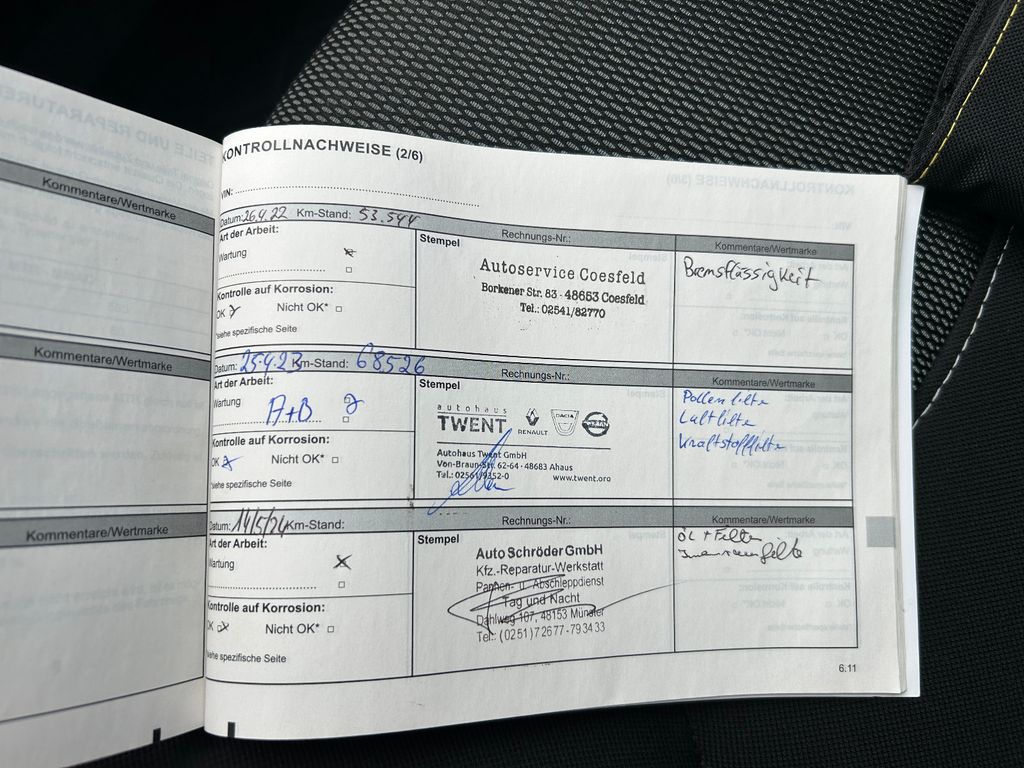 Kommentare/Wertmarke
Kommentare/Wertmarke
Kommentare/Wertmarke
KONTROLLNACHWEISE (2/6)
VIN:
Datum: 26.4.22 Km-Stand: 53.544
Art der Arbeit:
Wartung
Kontrolle auf Korrosion:
OK Nicht OK*
*siehe spezifische Seite
Stempel Rechnungs-Nr.:
Autoservice Coesfeld
Borkener Str. 83 · 48653 Coesfeld
Tel.: 02541/82770
Kommentare/Wertmarke
Bremsflüssigkeit
Datum: 25.4.23 Km-Stand: 68526
Art der Arbeit:
Wartung
A+B
Kontrolle auf Korrosion:
OK Nicht OK*
*siehe spezifische Seite
Stempel Rechnungs-Nr.:
autohaus
TWENT
RENAULT DACIA NISSAN
Autohaus Twent GmbH
Von-Braun-Str. 62-64 · 48683 Ahaus
Tel.: 02561/9352-0 www.twent.org
Kommentare/Wertmarke
Pollenfilter
Luftfilter
Kraftstofffilter
Datum: 14/5/24 Km-Stand:
Art der Arbeit:
Wartung
Kontrolle auf Korrosion:
OK Nicht OK*
*siehe spezifische Seite
Stempel Rechnungs-Nr.:
Auto Schröder GmbH
Kfz.-Reparatur-Werkstatt
Pannen- u. Abschleppdienst
Tag und Nacht
Dahlweg 107, 48153 Münster
Tel.: (0251) 72677-793433
Kommentare/Wertmarke
Öl + Filter
Innenraumfilter
6.11